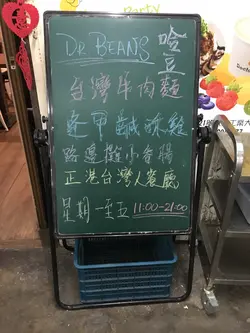 DR BEANS
豆
台灣牛肉麵
逢甲鹹酥雞
路邊攤小香腸
正港台灣人餐廳
星期一至五 11:00-21:00
Party